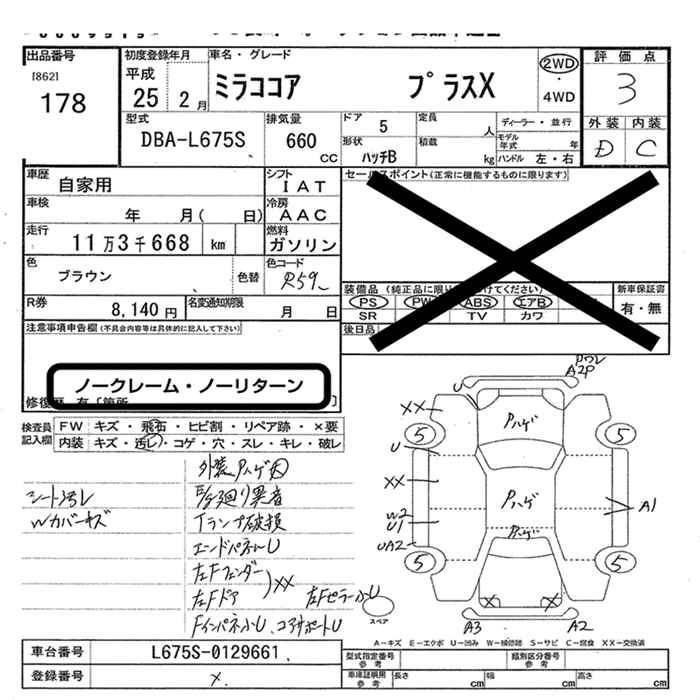 出品番号 初度登録年月 車名・グレード 評価点
[862] 平成 ミラココア プラスX 2WD 3
178 25 2月 4WD
型式 排気量 ドア 5 定員 人 ディーラー・並行 外装 内装
DBA-L675S 660 CC 形状 ハッチB 積載 kg モデル年式 年 D C
ハンドル 左・右
車歴 自家用 シフト IAT セールスポイント(正常に機能するものに限ります)
車検 年 月( 日) 冷房 AAC
走行 11万3千668 km 燃料 ガソリン
色 ブラウン 色替 色コード R59
装備品(純正品に限り をつけてください) 新車保証書
R券 8,140円 名変通知期限 月 日 PS PW ABS エアB 有・無
SR TV カワ
注意事項申告欄(不具合内容等は具体的に記入して下さい) 後日品
ノークレーム・ノーリターン
修復歴 有〔箇所 〕
検査員記入欄 FW キズ・飛石・ヒビ割・リペア跡・×要
内装 キズ・汚レ・コゲ・穴・スレ・キレ・破レ
外装Pハゲ大
シート汚レ E/g廻り異音
Wカバーキズ Tランプ破損
エンドパネルU
左Fフェンダー
左Fドア XX 左FピラーホU
FインパネホU、コアサポートU
A2P
U
XX Pハゲ
5 5
U
XX Pハゲ
W2 A1
U1 Pハゲ
UA2
5 5
X X
スペア A3 A2
A-キズ E-エクボ U-凹み W-補修跡 S-サビ C-腐食 XX-交換済
車台番号 L675S-0129661 型式指定番号 参考 類別区分番号 参考
登録番号 × 車庫証明用 参考 長さ cm 幅 cm 高さ cm